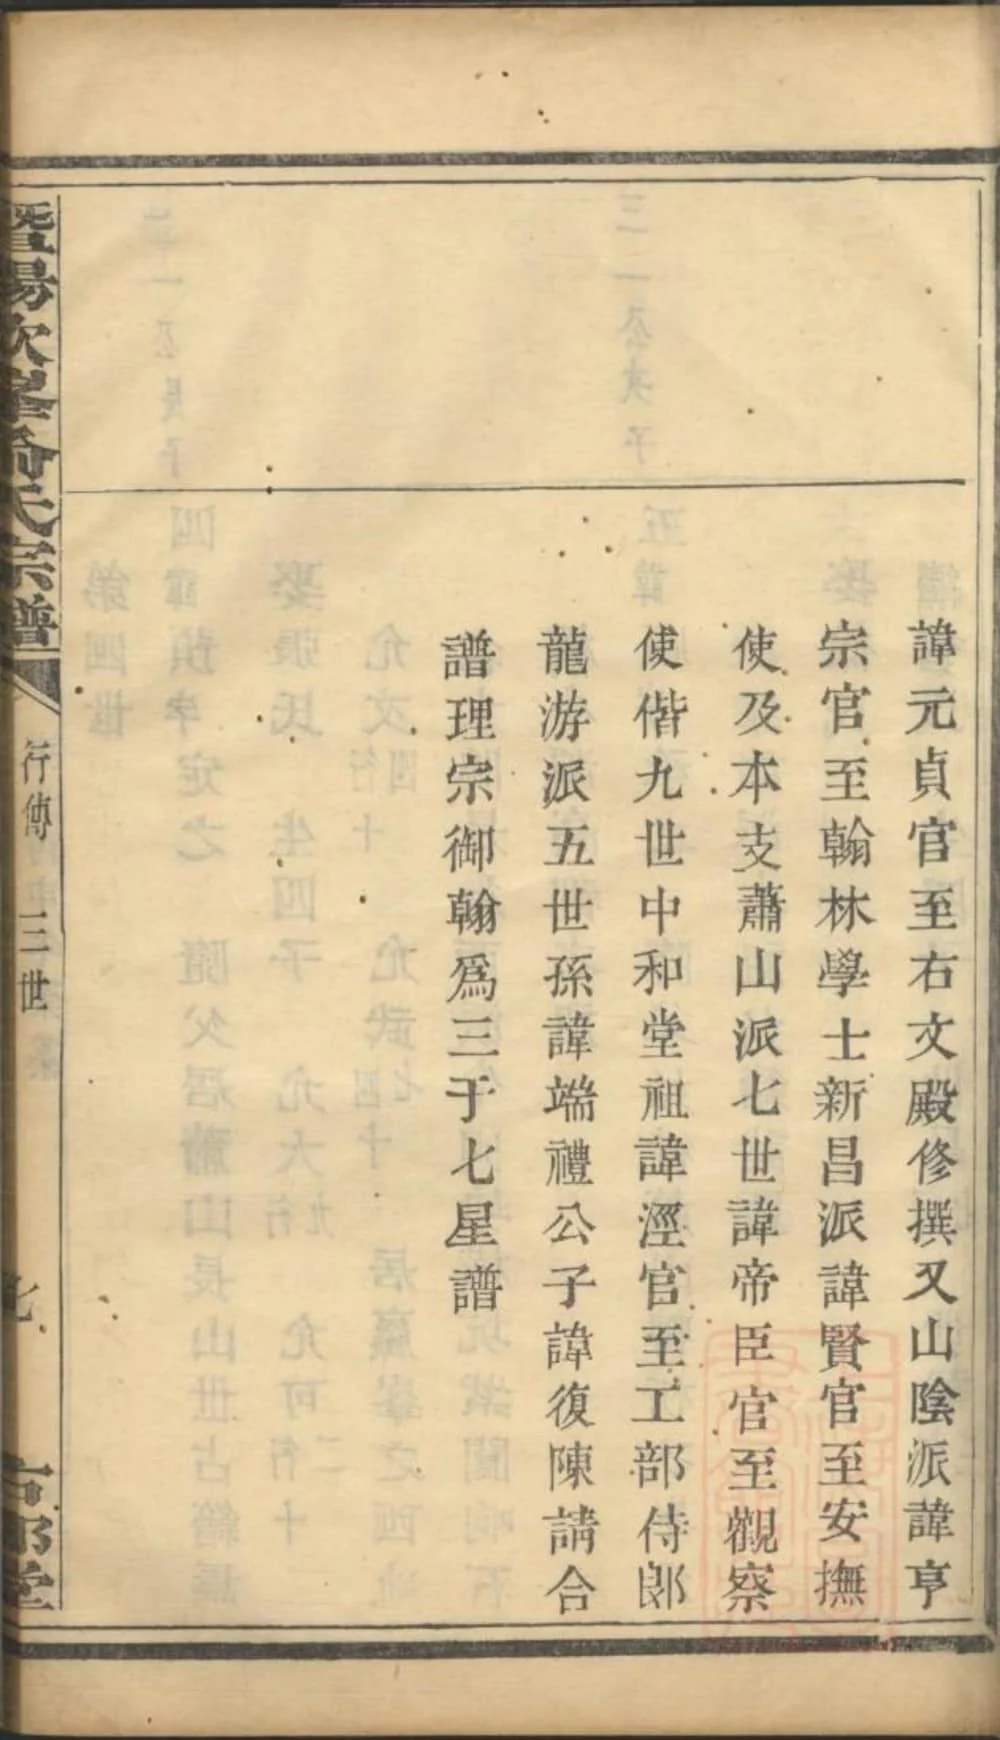 諱元貞官至右文殿修撰又山陰派諱亨
宗官至翰林學士新昌派諱賢官至安撫
使及本支蕭山派七世諱帝臣官至觀察
使偕九世中和堂祖諱澄官至工部侍郎
龍游派五世孫諱端禮公子諱復陳請合
譜理宗御翰爲三于七星譜
暨陽次峯俞氏宗譜
行傳
三世
七